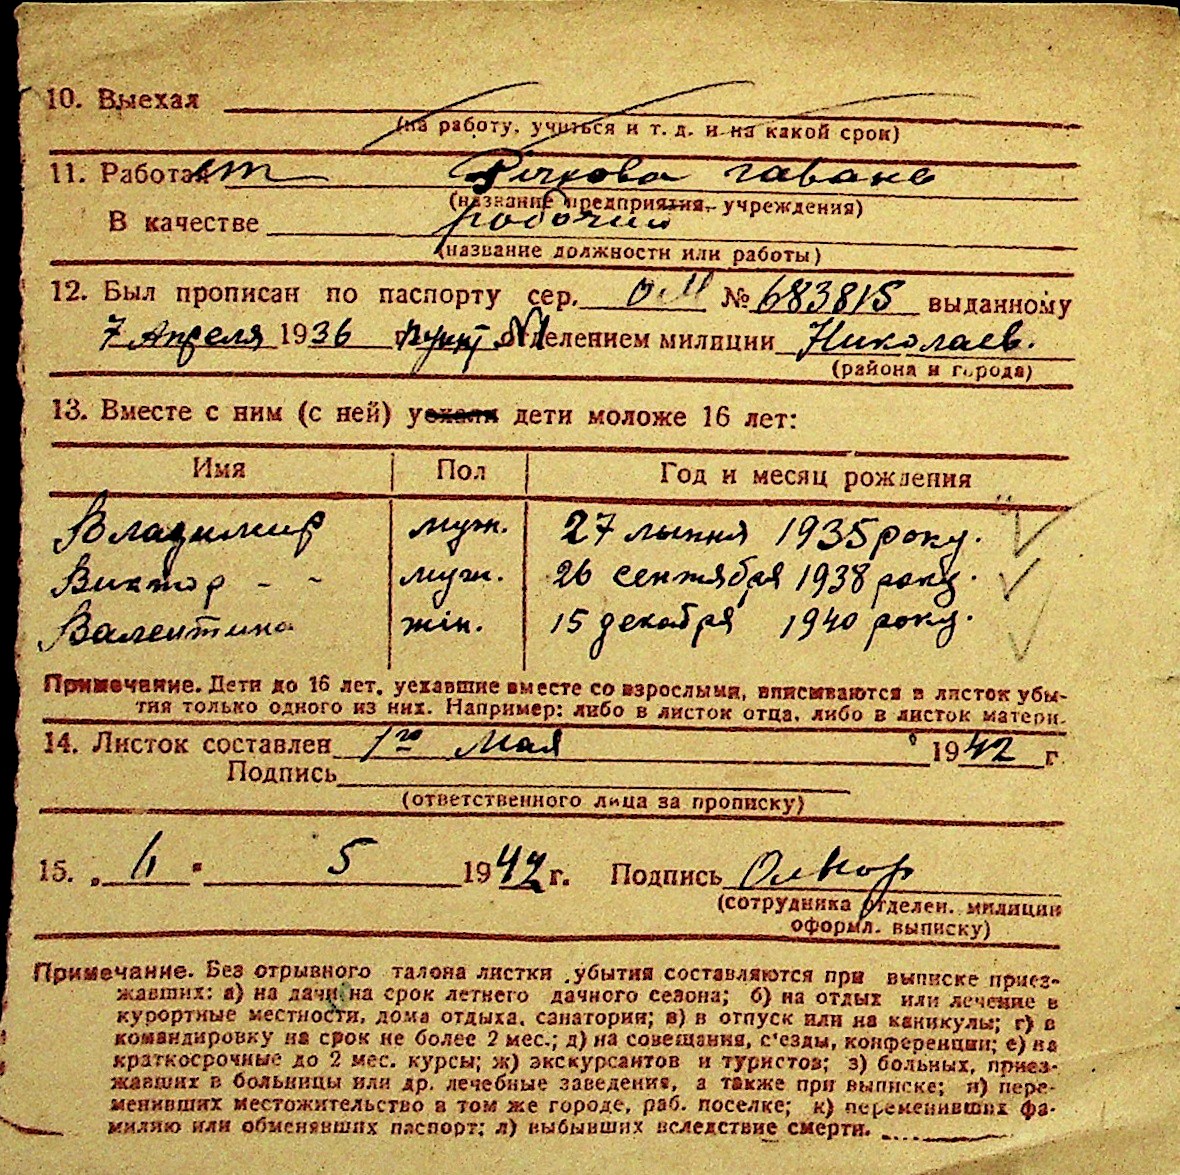 10. Выехал
(на работу, учиться и т. д. и на какой срок)
11. Работает Річкова гавань
(название предприятия, учреждения)
В качестве рабочий
(название должности или работы)
12. Был прописан по паспорту сер. ОМ № 683815 выданному
7 Апреля 1936 г. пункт. №1 отделением милиции Николаев.
(района и города)
13. Вместе с ним (с ней) уехали дети моложе 16 лет:
Имя Пол Год и месяц рождения
Владимир муж. 27 липня 1935 року.
Виктор - - муж. 26 сентября 1938 року.
Валентина жін. 15 декабря 1940 року.
Примечание. Дети до 16 лет, уехавшие вместе со взрослыми, вписываются в листок убы-
тия только одного из них. Например: либо в листок отца, либо в листок матери.
14. Листок составлен 1го Мая 1942 г.
Подпись
(ответственного лица за прописку)
15. „ " 5 1942 г. Подпись
(сотрудника отделен. милиции
оформл. выписку)
Примечание. Без отрывного талона листки убытия составляются при выписке приез-
жавших: а) на дачи на срок летнего дачного сезона; б) на отдых или лечение в
курортные местности, дома отдыха, санатории; в) в отпуск или на каникулы; г) в
командировку на срок не более 2 мес.; д) на совещания, с'езды, конференции; е) на
краткосрочные до 2 мес. курсы; ж) экскурсантов и туристов; з) больных, приез-
жавших в больницы или др. лечебные заведения, а также при выписке; и) пере-
менивших местожительство в том же городе, раб. поселке; к) переменивших фа-
милию или обменявших паспорт; л) выбывших вследствие смерти.